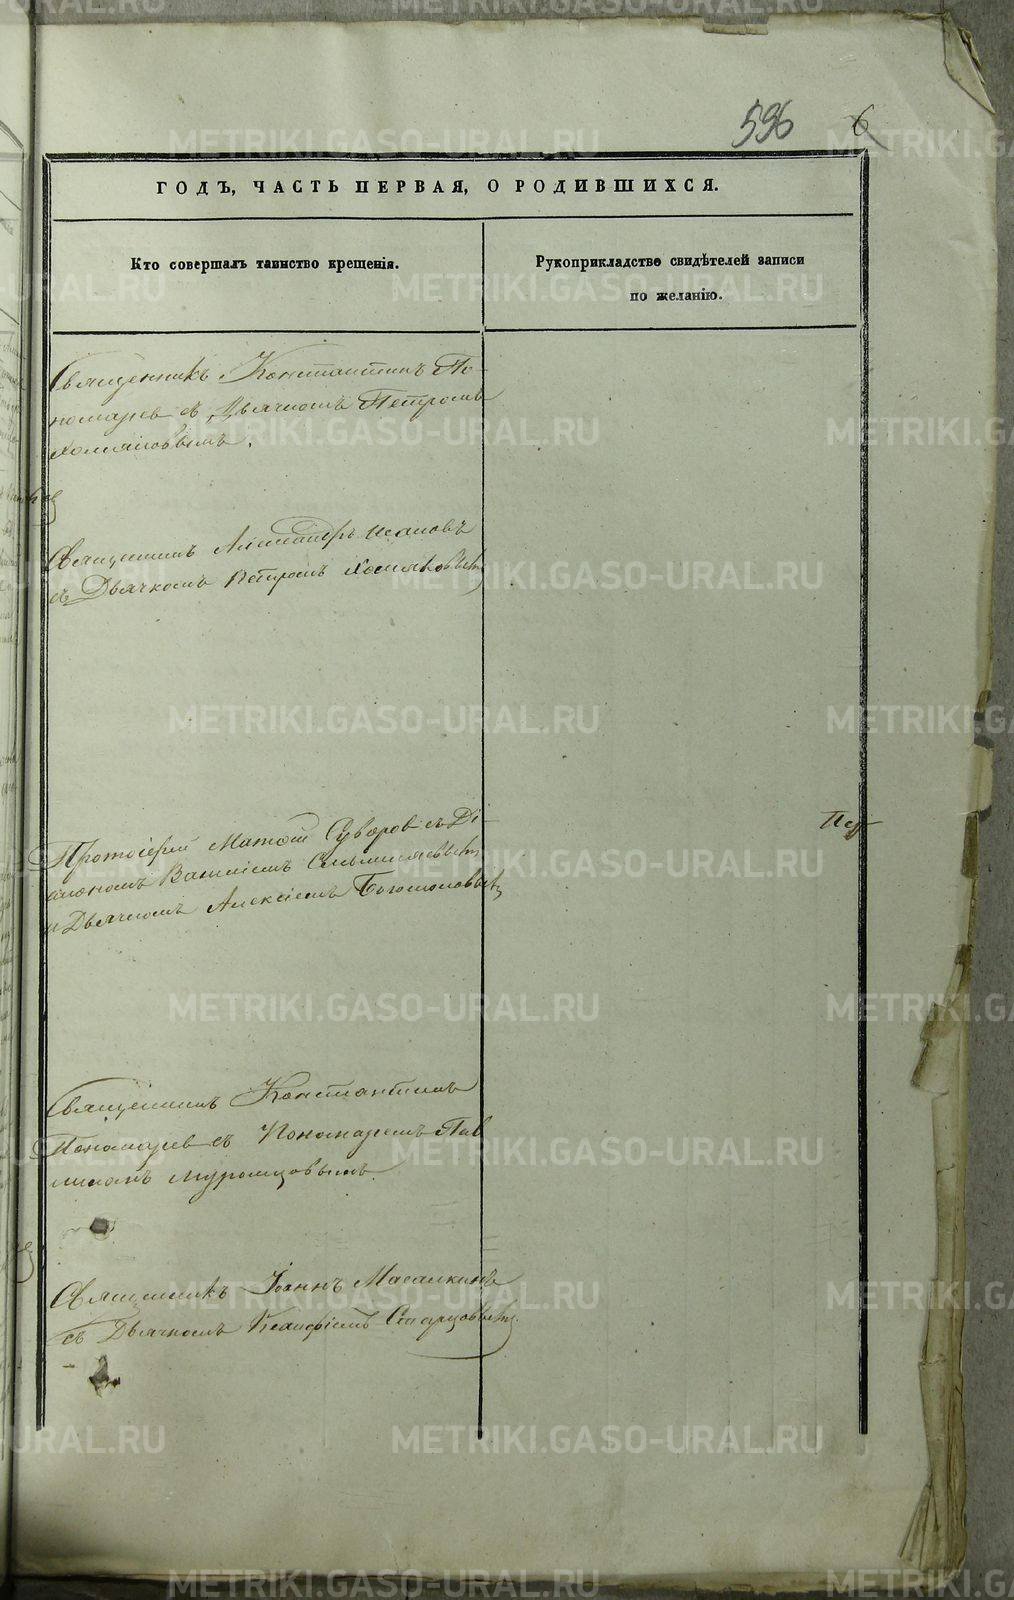 596 6
ГОДЪ, ЧАСТЬ ПЕРВАЯ, О РОДИВШИХСЯ.
Кто совершалъ таинство крещенія.
Рукоприкладство свидѣтелей записи
по желанію.
Священникъ Константинъ По-
номарев съ Дьячкомъ Петромъ
Хомяковымъ.
Священникъ Александръ
съ Дьячкомъ Петромъ Хомяковымъ
Протоіерей Матѳій Суворов съ Ді-
акономъ Василіемъ
и Дьячкомъ Алексіемъ Богомоловымъ
Священникъ Константинъ
Пономарев съ Пономаремъ
Муромцовымъ.
Священникъ Іоаннъ Масалкинъ
съ Дьячкомъ Старцовымъ.
METRIKI.GASO-URAL.RU